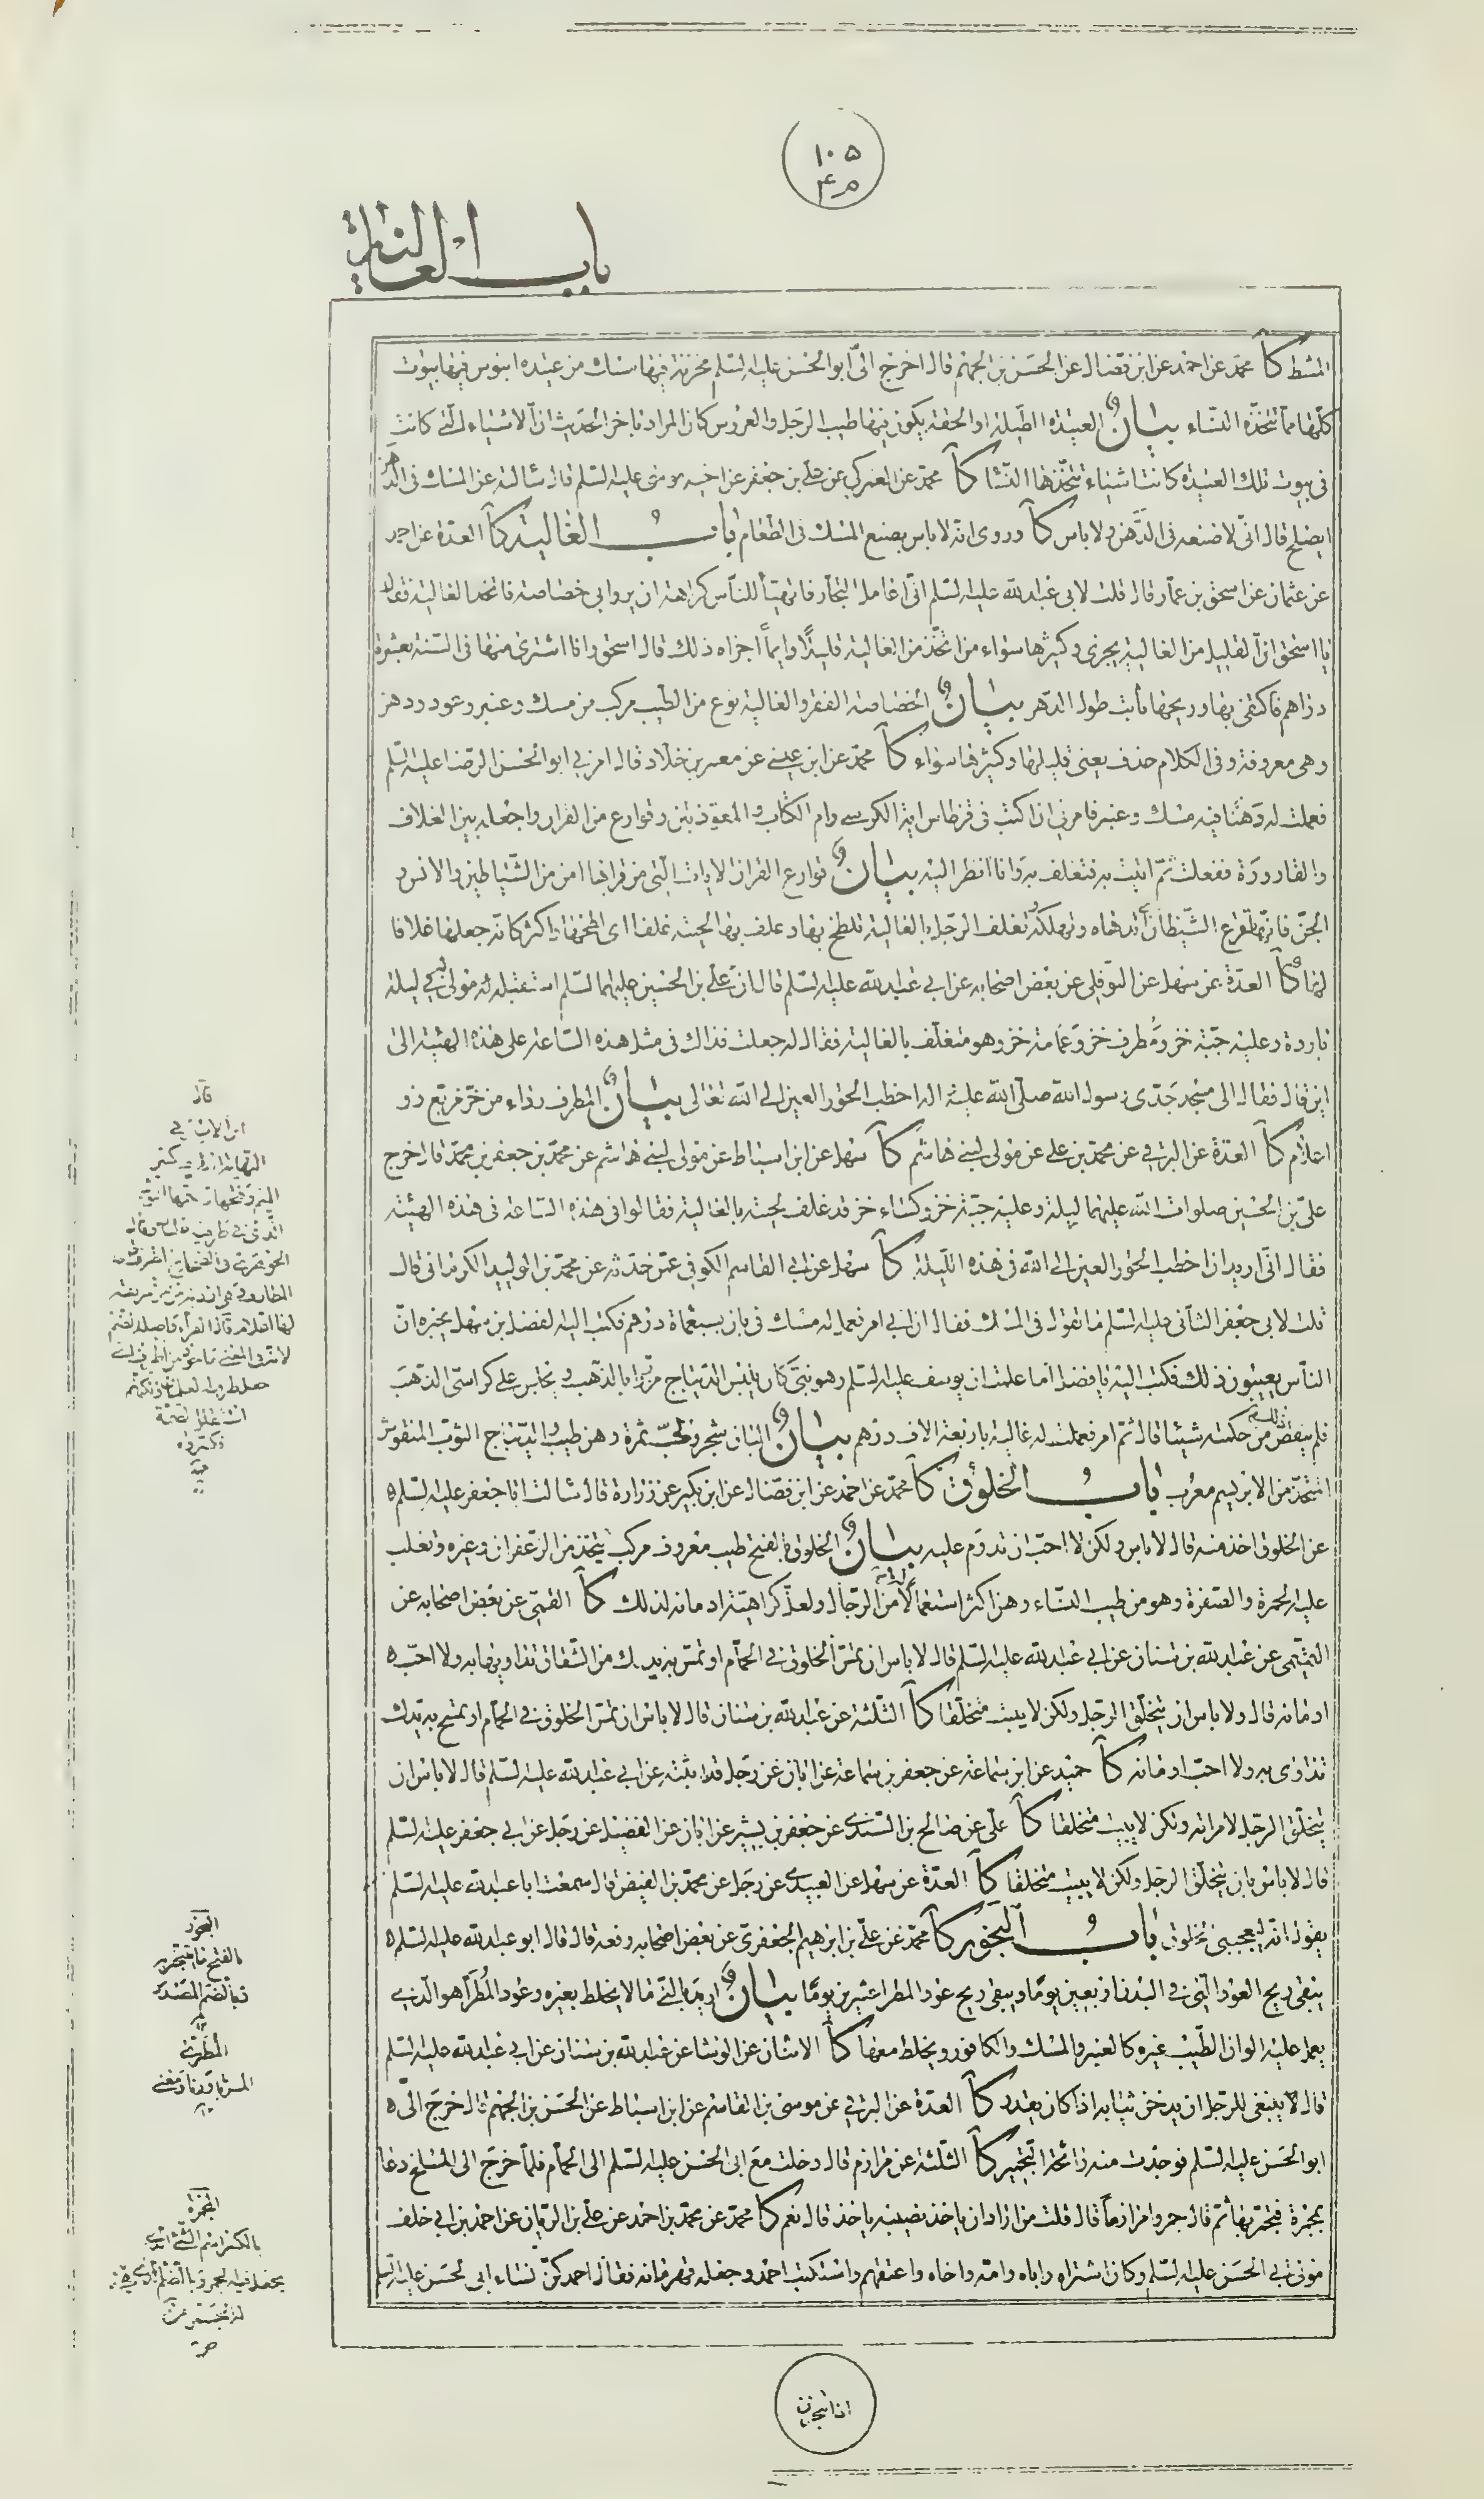 ١٠٥
باب الغالية
المشط كا محمد عن احمد عن ابن فضال عن الحسن بن الجهم قال اخرج الىّ ابو الحسن عليه السلم مخزنة فيها مسك من عتيدة ابنوس فيها بيوت
كلها مما تتخذه النساء بيان العتيدة الطبلة او الحقة يكون فيها طيب الرجل والعروس كان المراد باخر الحديث ان الاشياء التي كانت
فى بيوت تلك العتيدة كانت اشياء تتخذها النسا كا محمد عن العمركي عن علي بن جعفر عن اخيه موسى عليه السلم قال سالته عن المسك فى الدهن
ايصلح قال انّى لاصنعه فى الدهن ولا باس كا وروى انه لا باس بصنع المسك فى الطعام باب الغالية كا العدة عن احمد
عن عثمان عن اسحق بن عمار قال قلت لابى عبد الله عليه السلم انّى اعامل التجار فاتهيّأ للناس كراهة ان يروا بى خصاصة فاتخذ الغالية فقال
يا اسحق انّ القليل من الغالية يجزى وكثيرها سواء من اتخذ من الغالية قليلاً دايماً اجزاه ذلك قال اسحق وانا اشترى منها فى السنة بعشرة
دراهم فاكتفى بها وريحها ثابت طول الدهر بيان الخصاصة الفقر والغالية نوع من الطيب مركب من مسك وعنبر وعود ودهن
وهى معروفة وفى الكلام حذف يعنى قليلها وكثيرها سواء كا محمد عن ابن عيسى عن معمر بن خلاد قال امرنى ابو الحسن الرضا عليه السلم
فعملت له دهنا فيه مسك وعنبر فامرنى ان اكتب فى قرطاس اية الكرسى وام الكتاب والمعوذتين وقوارع من القران واجعله بين الغلاف
والقارورة ففعلت ثمّ اتيته به فتغلف به وانا انظر اليه بيان قوارع القران الايات الّتى من قراها امن من الشياطين والانس و
الجنّ فانّها تقرع الشيطان اى تدهاه وتهلكه تغلف الرجل بالغالية تلطخ بها وغلف بها لحيته غلفا اى لطخها واكثر كانّه جعلها غلافا
لها كا العدة عن سهل عن النوفلى عن بعض اصحابه عن ابى عبد الله عليه السلم قال ان علىّ بن الحسين عليهما السلم استقبله له مولى فى ليلة
باردة وعليه جبّة خز ومُطرف خز وعمامة خز وهو متغلف بالغالية فقال له جعلت فداك فى مثل هذه الساعة على هذه الهيئة الى
اين قال فقال الى مسجد جدّى رسول الله صلّى الله عليه واله اخطب الحور العين الى الله تعالى بيان المطرف رداء من خزّ مربّع ذو
اعلام كا العدة عن البرقى عن محمد بن على عن مولى لبنى هاشم كا سهل عن ابن اسباط عن مولى لبنى هاشم عن محمد بن جعفر بن محمد قال خرج
علىّ بن الحسين صلوات الله عليهما ليلة وعليه جبّة خز وكساء خز قد غلف لحيته بالغالية فقالوا فى هذه الساعة فى هذه الهيئة
فقال انّى اريد ان اخطب الحور العين الى الله فى هذه الليلة كا سهل عن ابى القاسم الكوفى عمّن حدّثه عن محمد بن الوليد الكرمانى قال
قلت لابى جعفر الثانى عليه السلم ما تقول فى المسك فقال ان ابى امر فعمل له مسك فى بان بسبعماة درهم فكتب اليه الفضل بن سهل يخبره انّ
الناس يعيبون ذلك فكتب اليه يا فضل اما علمت ان يوسف عليه السلم وهو نبىّ كان يلبس الديباج مزرّرا بالذّهب ويجلس على كراسىّ الذّهب
فلم ينقص ذلك من حكمته شيئا قال ثمّ امر فعملت له غالية باربعة الاف درهم بيان البان شجر ولحبّ ثمره دهن طيب والديباج الثوب المنقوش
المتخذ من الابريسم معرب باب الخلوق كا محمد عن احمد عن ابن فضال عن ابن بكير عن زرارة قال سالت ابا جعفر عليه السلم
عن الخلوق اخذ منه قال لا باس ولكن لا احبّ ان تدوم عليه بيان الخلوق بالفتح طيب معروف مركب يتخذ من الزعفران وغيره وتغلب
عليه الحمرة والصفرة وهو من طيب النساء وهن اكثر استعمالا له من الرجال ولعلّ كراهيته ادمانه لذلك كا القمى عن بعض اصحابه عن
الهيثمى عن عبد الله بن سنان عن ابى عبد الله عليه السلم قال لا باس ان تمسّ الخلوق فى الحمام او تمسّ به يدك من الشقاق تداويها به ولا احبّ
ادمانه قال ولا باس ان يتخلّق الرجل ولكن لا يبيت متخلّقا كا الثلثة عن عبد الله بن سنان قال لا باس ان تمسّ الخلوق فى الحمام او تمسح به يدك
تداوى به ولا احبّ ادمانه كا حميد عن ابن سماعة عن جعفر بن سماعة عن ابان عن رجل قد اثبته عن ابى عبد الله عليه السلم قال لا باس ان
يتخلّق الرجل لامراته ولكن لا يبيت متخلقا كا علىّ عن صالح بن السندى عن جعفر بن بشير عن ابان عن الفضيل عن رجل عن ابى جعفر عليه السلم
قال لا باس بان يتخلّق الرجل ولكن لا يبيت متخلقا كا العدة عن سهل عن العبيدى عن رجل عن محمد بن الفيض قال سمعت ابا عبد الله عليه السلم
يقول انّه ليعجبنى الخلوق باب البخور كا محمد عن علىّ بن ابرهيم الجعفرىّ عن بعض اصحابه رفعه قال قال ابو عبد الله عليه السلم
يبقى ريح العود الّتى فى البدن اربعين يومًا ويبقى ريح عود المطرا عشرين يومًا بيان اريد بالنّى ما لا يخلط بغيره وعود المُطرّا هو الّذى
يعمل عليه الوان الطّيب غيره كالعنبر والمسك والكافور ويخلط معها كا الاثنان عن الوشا عن عبد الله بن سنان عن ابى عبد الله عليه السلم
قال لا ينبغى للرجل ان يدخن ثيابه اذا كان يقدر كا العدة عن البرقى عن موسى بن القاسم عن ابن اسباط عن الحسن بن الجهم قال خرج الىّ
ابو الحسن عليه السلم فوجدت منه رائحة التجمير كا الثلثة عن مرازم قال دخلت مع ابى الحسن عليه السلم الى الحمام فلمّا خرج الى المسلخ دعا
بمجمرة فتجمّر بها ثمّ قال جمروا مرازماً قال قلت من اراد ان ياخذ نصيبه ياخذ قال نعم كا محمد عن محمد بن احمد عن علىّ بن الريان عن احمد بن ابى خلف
مولى ابى الحسن عليه السلم وكان اشتراه واباه وامّه واخاه واعتقهم واستكتب احمد وجعله قهرمانه فقال احمد كنّ نساء ابى الحسن عليه السلم
قال
ابن الاثير فى
البخور
بالفتح ما يتبخر به
وبالضم المصدر
المجمرة
اذا تبخرن